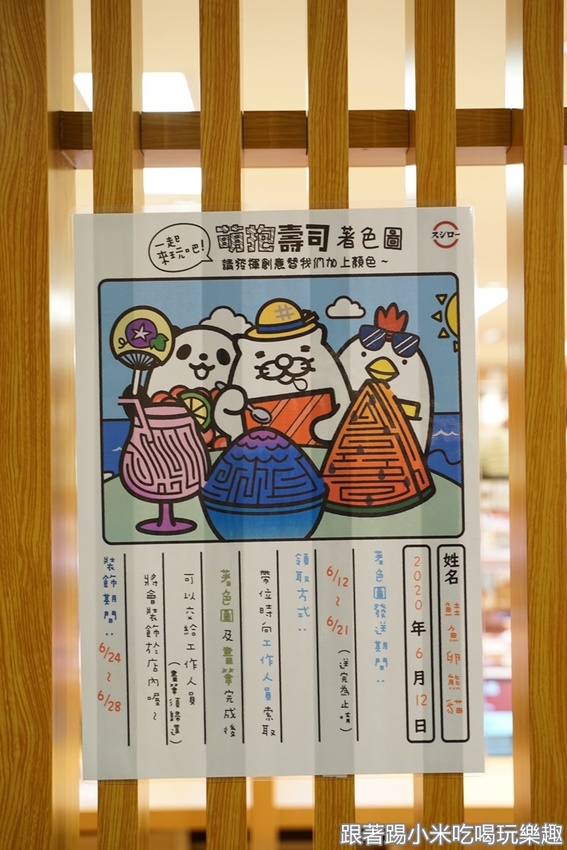 一起
來玩吧!
萌抱壽司著色圖
請發揮創意替我們加上顏色~
スシロー
姓名 鮭魚卵熊貓
2020年6月12日
著色圖發送期間:
6/12~6/21(送完為止唷)
領取方式:
帶位時向工作人員索取
著色圖及畫筆完成後
可以交給工作人員
(畫筆須歸還)
將會裝飾於店內喔~
裝飾期間:6/24~6/28
跟著踢小米吃喝玩樂趣